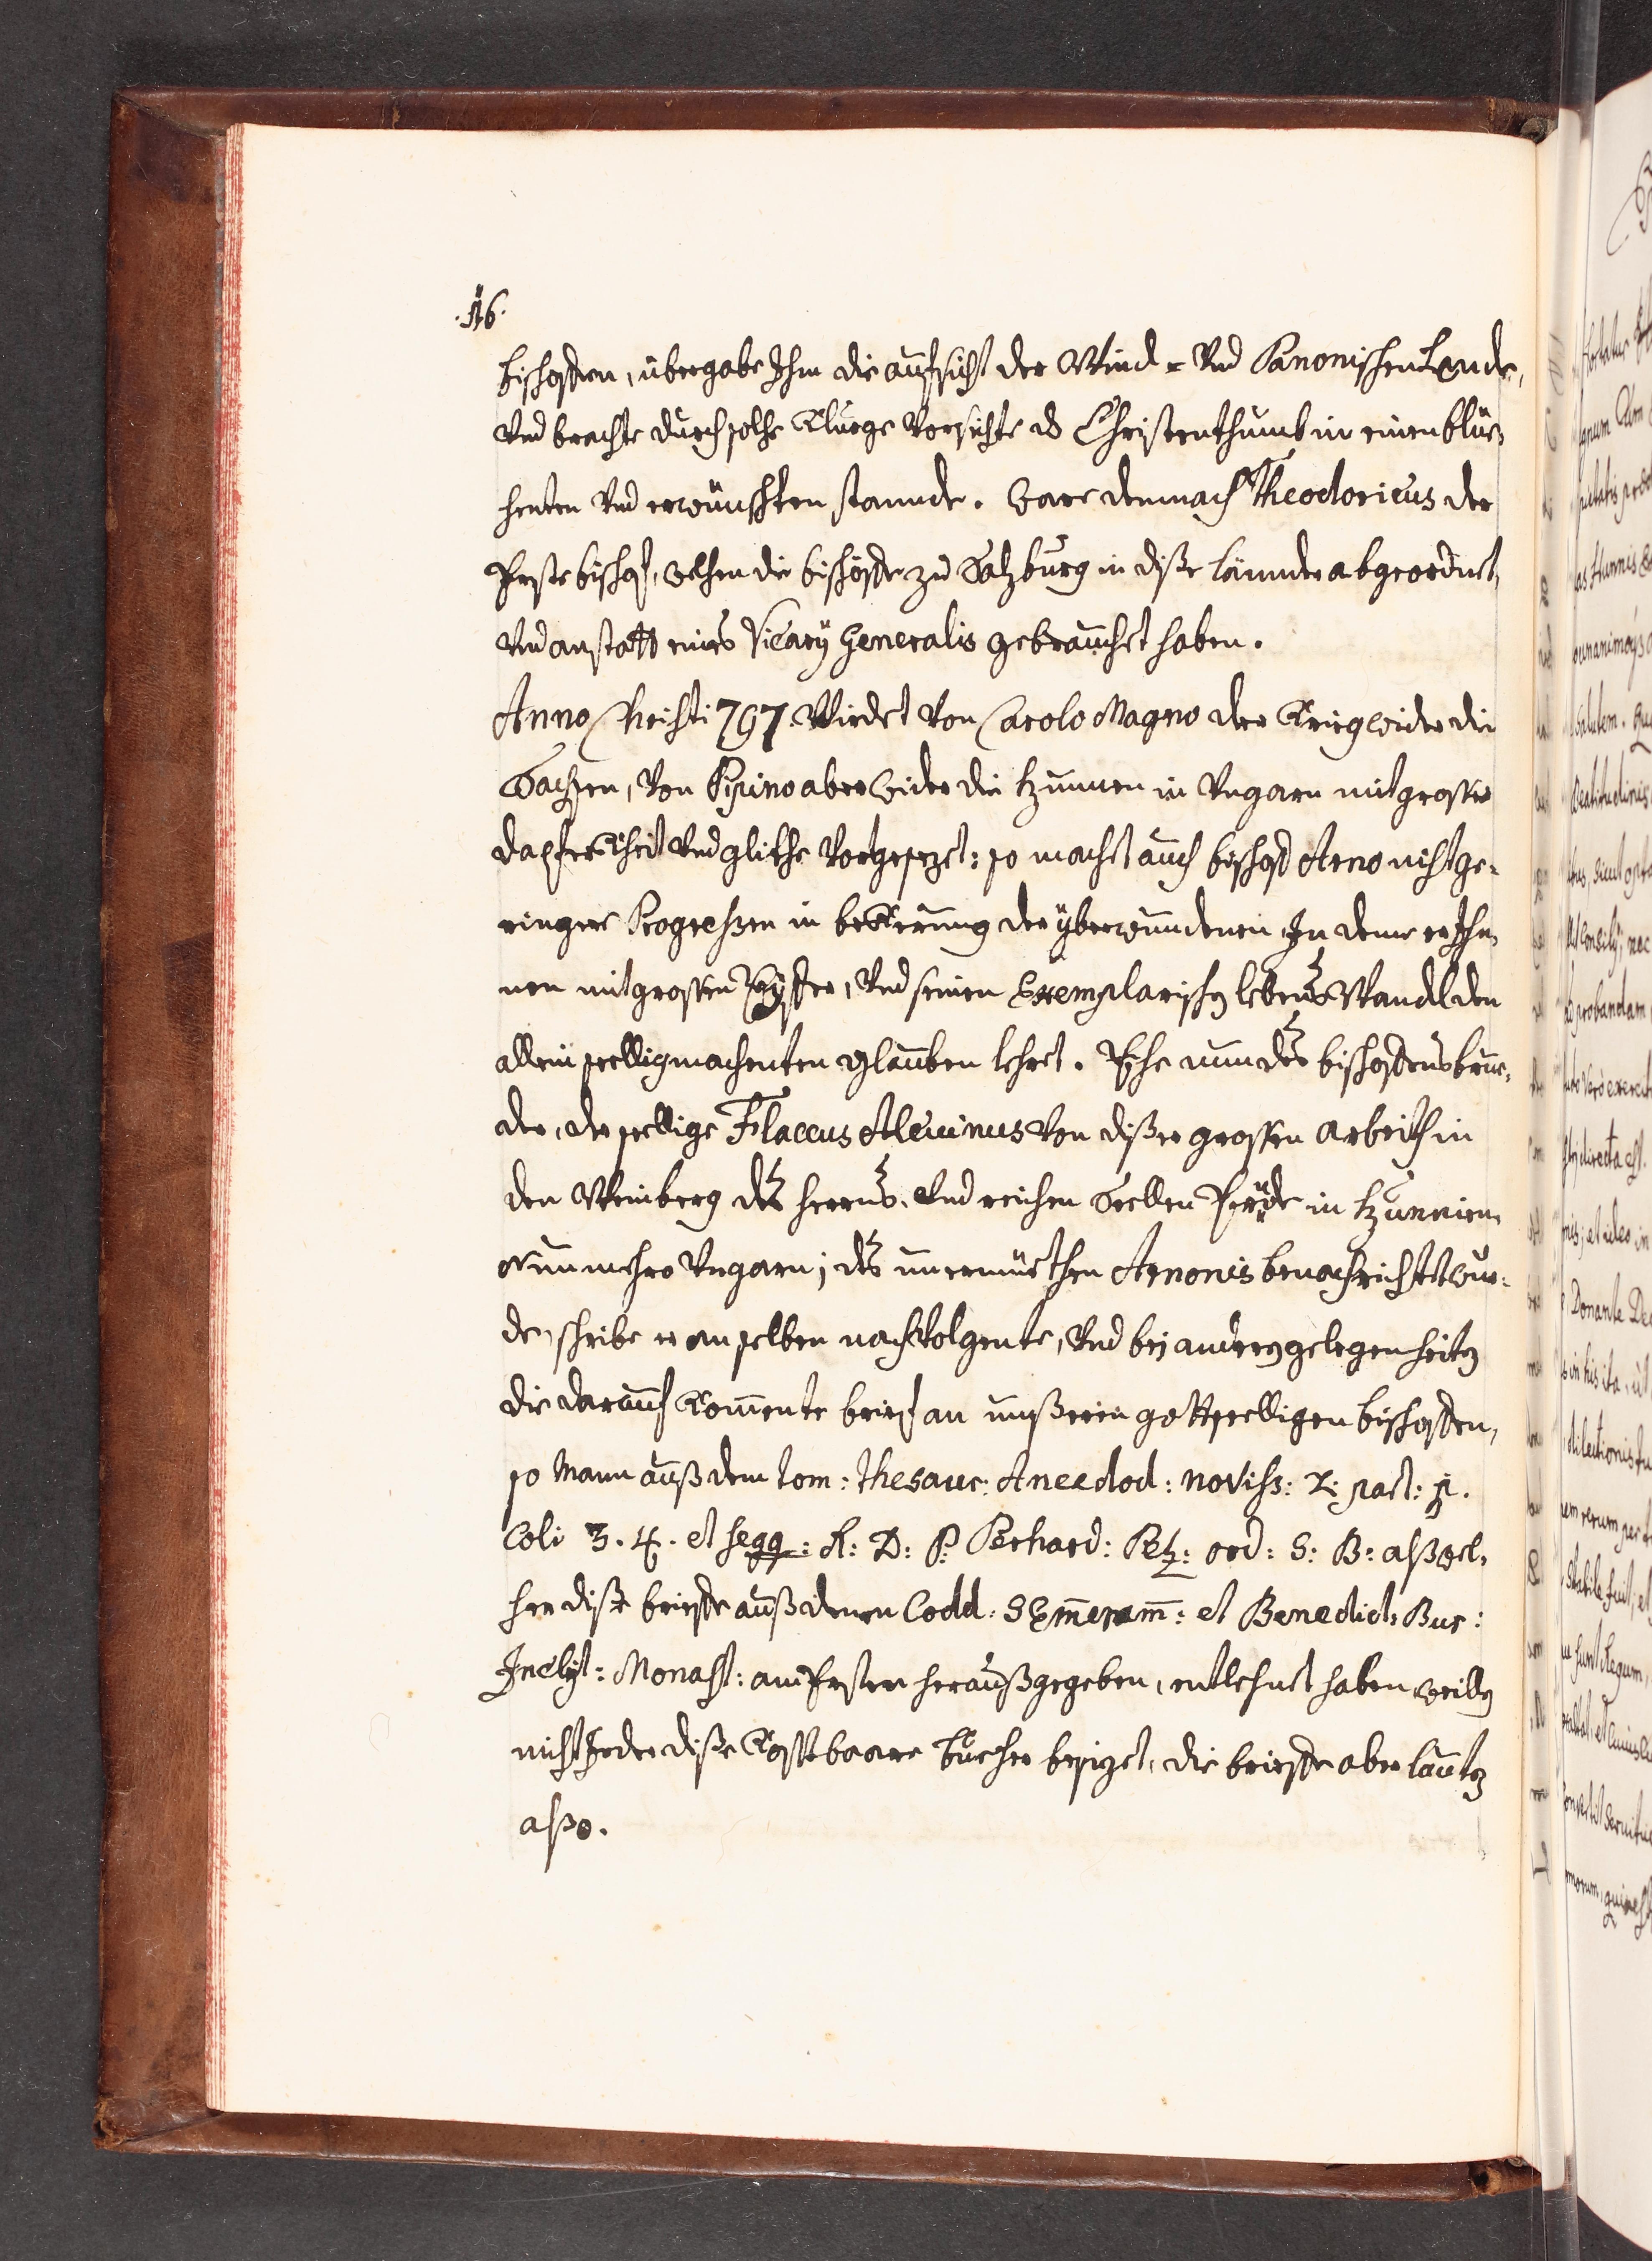 .16.
bischoffen, übergabe Ihm die aufsicht der Wind= Vnd Panonischen Lande,
Vnd brachte durch solche Kluege Vorsichte ds Christenthumb in einen blüe=
henten Vnd erwünschten stannde. Ware demnach Theodoricus der
Erste bischof, welchen die bischöffe zu Salzburg in diße länndter abgeordnet,
Vnd anstatt eines Vicarÿ Generalis gebrauchet haben.
Anno Christi 797. Wirdet Von Carolo Magno der Krieg wider die
Sachsen, Von Pipino aber wider die Hunnen in Vngarn mit grosser
dapferkheit Vnd glikhe Vortgesezet: so machet auch bischoff Arno nicht ge=
ringere Progressen in bekherung der yberwundenen, In deme er Ih=
nen mit grossen Eyffer, Vnd seinen Exemplarischen lebens Wandl den
allein seelligmachenten glauben lehret. Ehe nun des bischoffens brue=
der, der seellige Flaccus Alcuinus Von dißer grossen arbeith in
den Weinberg des Herrens, Vnd reichen Seellen in Hunnien,
Nunmehro Vngarn; des unermüethen Arnonis benachrichtet wur=
de, schribe er an selben nachVolgente, Vnd bej anderen gelegenheiten
die darauf Komente brief an unßeren gottseelligen bischoffen,
so Mann auß dem tom: thesaur: Anecdod: noviss: 2: part: 1.
Coli 3. 4. et seqq: A: R: P: Perhard: Petz: ord: S: B: alß wel=
cher diße brieffe auß denen Codd: S Emeram: et Benedict: Bur:
Inclyt: Monast: am Ersten heraußgegeben, entlehnet haben, weillen
nicht Jeder diße Kostbaare büecher besizet, die brieffe aber lauten
alßo.